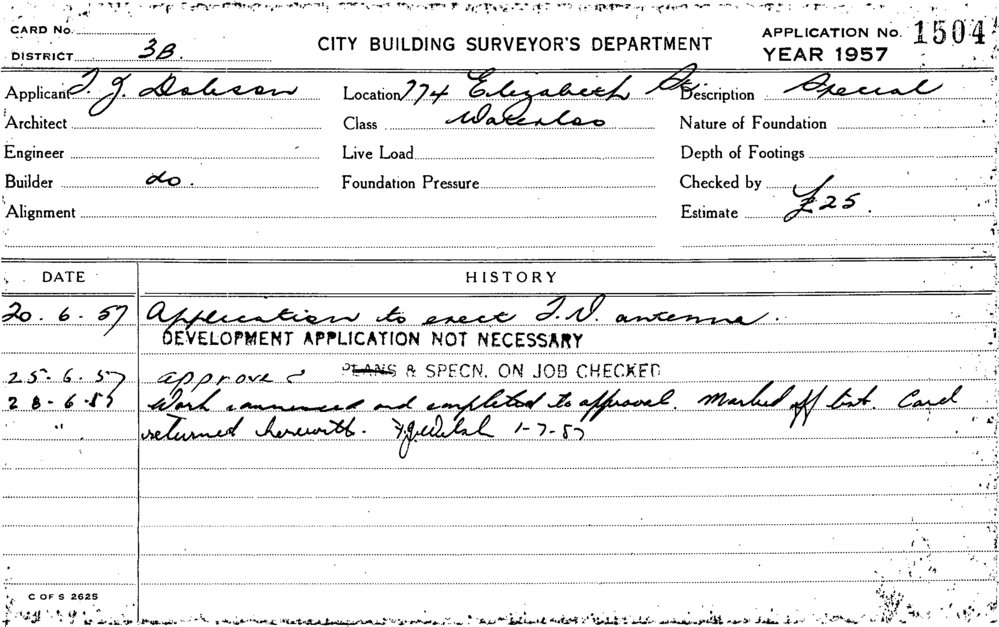 CARD No.
DISTRICT 3B.
CITY BUILDING SURVEYOR'S DEPARTMENT
APPLICATION No. 1504
YEAR 1957
Applicant T. J. Dobson Location 774 Elizabeth St. Description Special
Architect Class Waterloo Nature of Foundation
Engineer Live Load Depth of Footings
Builder do. Foundation Pressure Checked by
Alignment Estimate £25.
DATE HISTORY
20. 6. 57 Application to erect T.V. antenna.
DEVELOPMENT APPLICATION NOT NECESSARY
25. 6. 57 approved PLANS & SPECN. ON JOB CHECKED
28-6-57 Work commenced and completed to approval. Marked off list. Card
" returned herewith. 1-7-57
C OF S 2625